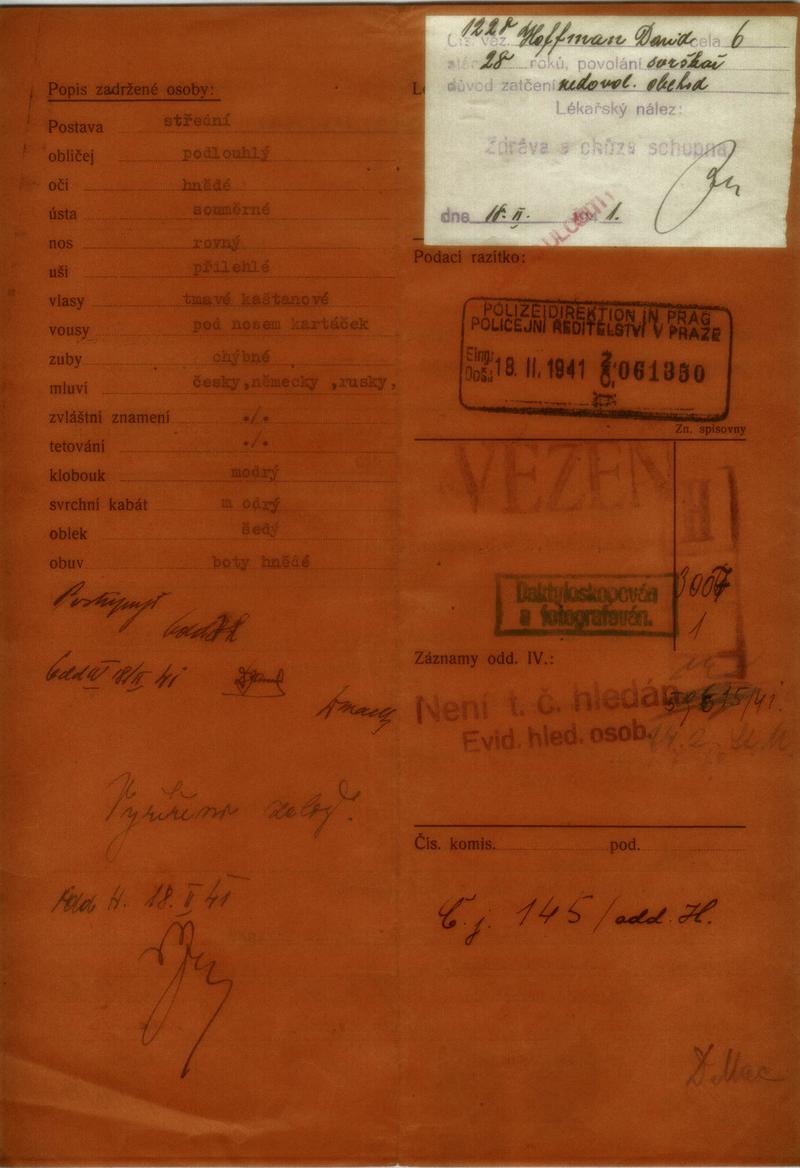 Popis zadržené osoby:
Postava střední
obličej podlouhlý
oči hnědé
ústa souměrné
nos rovný
uši přilehlé
vlasy tmavé kaštanové
vousy pod nosem kartáček
zuby chybné
mluví česky,německy ,rusky,
zvláštní znamení ./.
tetování ./.
klobouk modrý
svrchní kabát m odrý
oblek šedý
obuv boty hnědé
18/II 41
Vyřízeno
odd H. 18. II 41
1228 Hoffman David cela 6
28 roků, povolání svrškař
důvod zatčení nedovol. obchod
Lékařský nález:
Zdráva a chůze schopna
dne 18. II. 1.
Podací razítko:
POLIZEIDIREKTION IN PRAG
POLICEJNÍ ŘEDITELSTVÍ V PRAZE
Eing:
Doš.: 18. II. 1941 061350
Zn. spisovny
VĚZEŇ
Daktyloskopován
a fotografován.
3007
1
Záznamy odd. IV.:
Není t. č. hledán
Evid. hled. osob.
Čís. komis. pod.
Č. j. 145/odd. H.